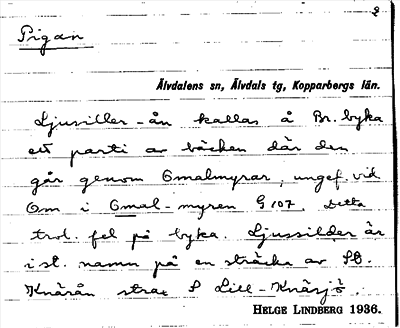 2
Prigan
Älvdalens sn, Älvdals tg, Kopparbergs län.
Ljusiller-ån kallas å Br. byka
ett parti av bäcken där den
går genom Gmalmyrar, ungef. vid
Om i Gmal-myren G 107. Detta
trol. fel på byka. Ljussilder är
i st. namn på en sträcka av St.
Knärån strax S Lill-Knärsjö.
HELGE LINDBERG 1936.